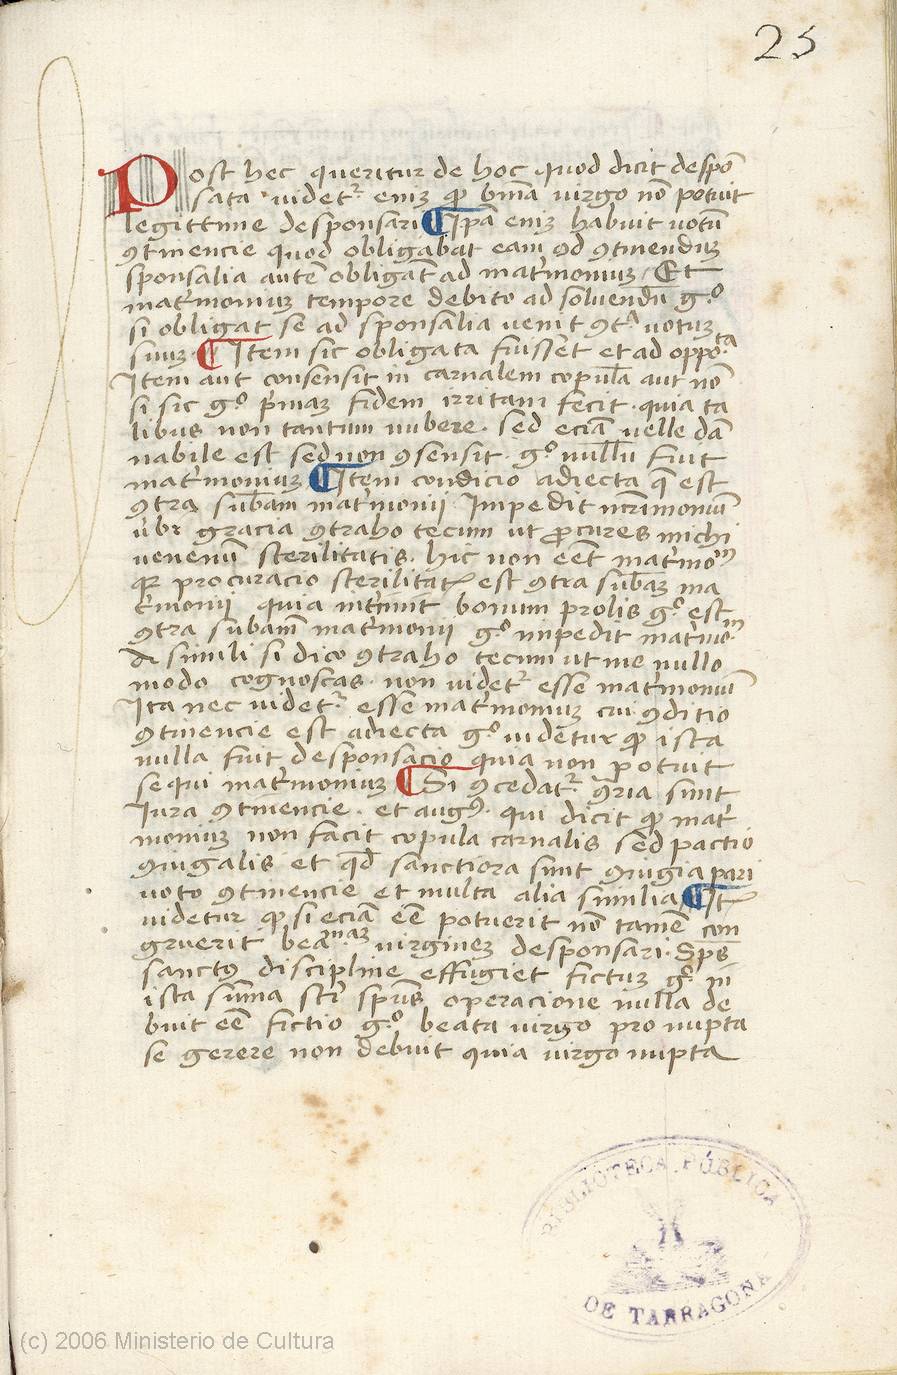 25
Post hec queritur de hoc quod dicit despō
sata videt᷑ enīz ꝙ btīa virgo nō potuit
legittime desponsari ¶ Ip̄a enīz habuit votū
ꝯtinencie quod obligabat eam ad ꝯtinenduz
sponsalia autē obligāt ad matr̄imoniuz / Et
matr̄imoniuz tempore debito ad soluendū gͦ
si obligat se ad sponsalia venit ꝯtᵃ votuz
suuz ¶ Item sic obligata fuisset et ad oppoᵗᵃ
Item aut consensit in carnalem copulā aut nō
si sic gͦ pͥmaz fidem irritam fecit · quia ta
libus non tantum nubere · sed eciā velle dā
nabile est sed non ꝯsensit · gͦ nullū fuit
matr̄imoniuz ¶ Item condicio adiecta q̄ est
ꝯtra sub̄am matr̄imonii impedit mr̄imoniū
v̄bi gracia ꝯtraho tecum ut ꝓcures michi
venenū sterilitatis · hic non eēt matr̄imoᵐ
qꝛ procuracio sterilitatꝭ est ꝯtra sub̄az ma
tr̄imonij quia int̄imit bonum prolis gͦ est
ꝯtra sub̄am matr̄imonij gͦ impedit matr̄imoᵐ
A simili si dico ꝯtraho tecum ut me nullo
modo cognoscas · non videt᷑ esse matr̄imoniū
Ita nec videt᷑ esse matr̄imoniuz cui ꝯditio
ꝯtinencie est adiecta gͦ videtur ꝙ ista
nulla fuit desponsacio quia non potuit
sequi matr̄imoniuz ¶ Si ꝯcedat᷑ ꝯ̄ria sunt
Iura ꝯtinencie · et augꝰ · qui dicit ꝙ matr̄i
moniuz non facit copula carnalis sed pactio
ꝯiugalis et qd̄ sanctiora sunt ꝯiugia pari
voto ꝯtinencie et multa alia similia ¶ Itꝭ
videtur ꝙ si eciā eē potuerit nō tamē con
gruerit beatᵃᵐ virginez desponsari · Sp̄s
sanctꝰ discipline effugiet fictuz gͦ in
ista summa scī sp̄us operacione nulla de
buit eē fictio gͦ beata virgo pro nupta
se gerere non debuit quia virgo nupta
BIBLIOTECA PÚBLICA
DE TARRAGONA
(c) 2006 Ministerio de Cultura